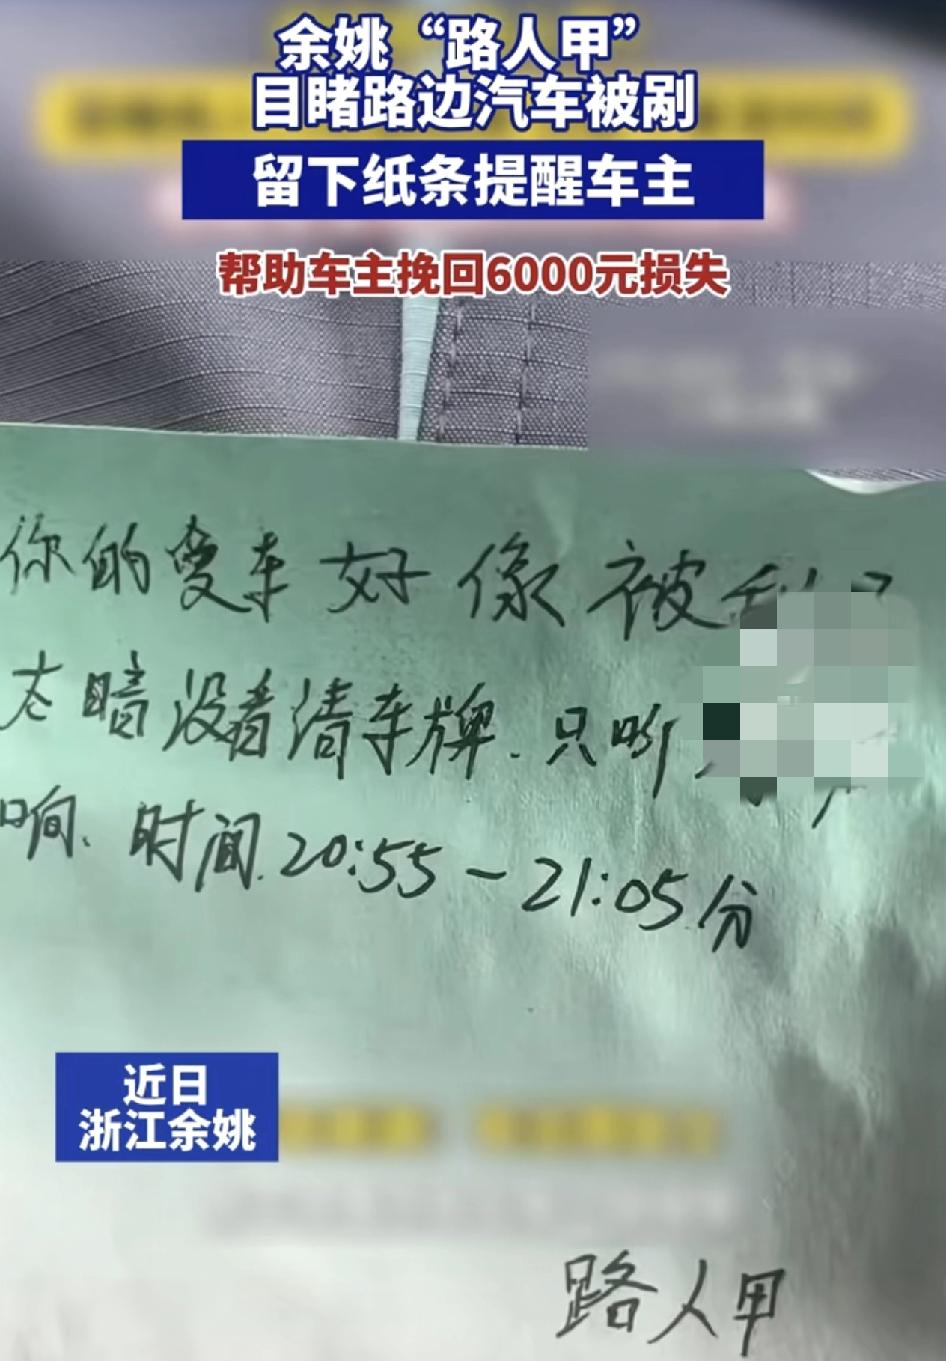 余姚“路人甲”
目睹路边汽车被剐
留下纸条提醒车主
帮助车主挽回6000元损失
你的爱车好像被
太暗没看清车牌.只听
响、时间.20:55-21:05分
近日
浙江余姚
路人甲